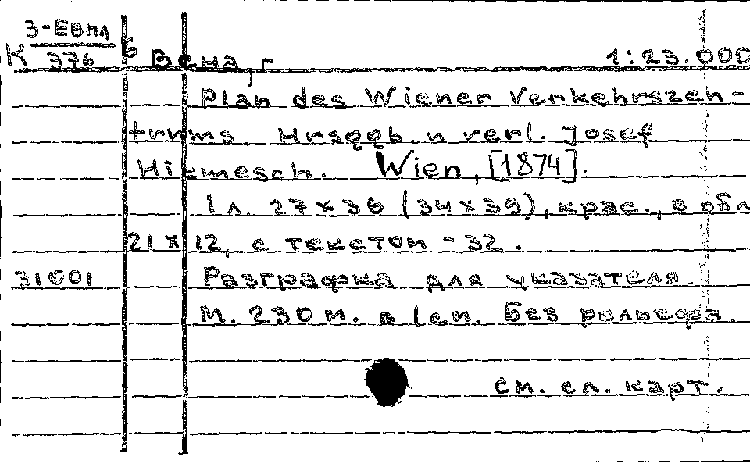 3-Евпл
К 376 б Вена, г. 1:23.000
Plan des Wiener Verkehrszen-
trums. Hrsgeb. u verl. Josef
Wien, [1874].
1 л. 27 х 36 (34 х 39), крас., в обл
21 х 12, с текстом - 32.
31601 Разграфка для указателя.
М. 230 м. в 1 см. Без рельефа.
см. сл. карт.